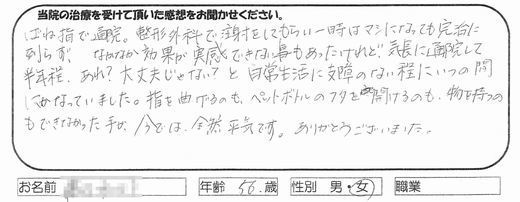 当院の治療を受けて頂いた感想をお聞かせください。
ばね指で通院。整形外科で注射をしてもらい一時はマシになっても完治に
到らず、なかなか効果が実感できない事もあったけれど、気長に通院して
半年程、あれ?大丈夫じゃない?と日常生活に支障のない程にいつの間
にかなっていました。指を曲げるのも、ペットボトルのフタを開けるのも、物を持つの
もできなかった手が、今では、全然平気です。ありがとうございました。
お名前 年齢 56.歳 性別 男・女 職業